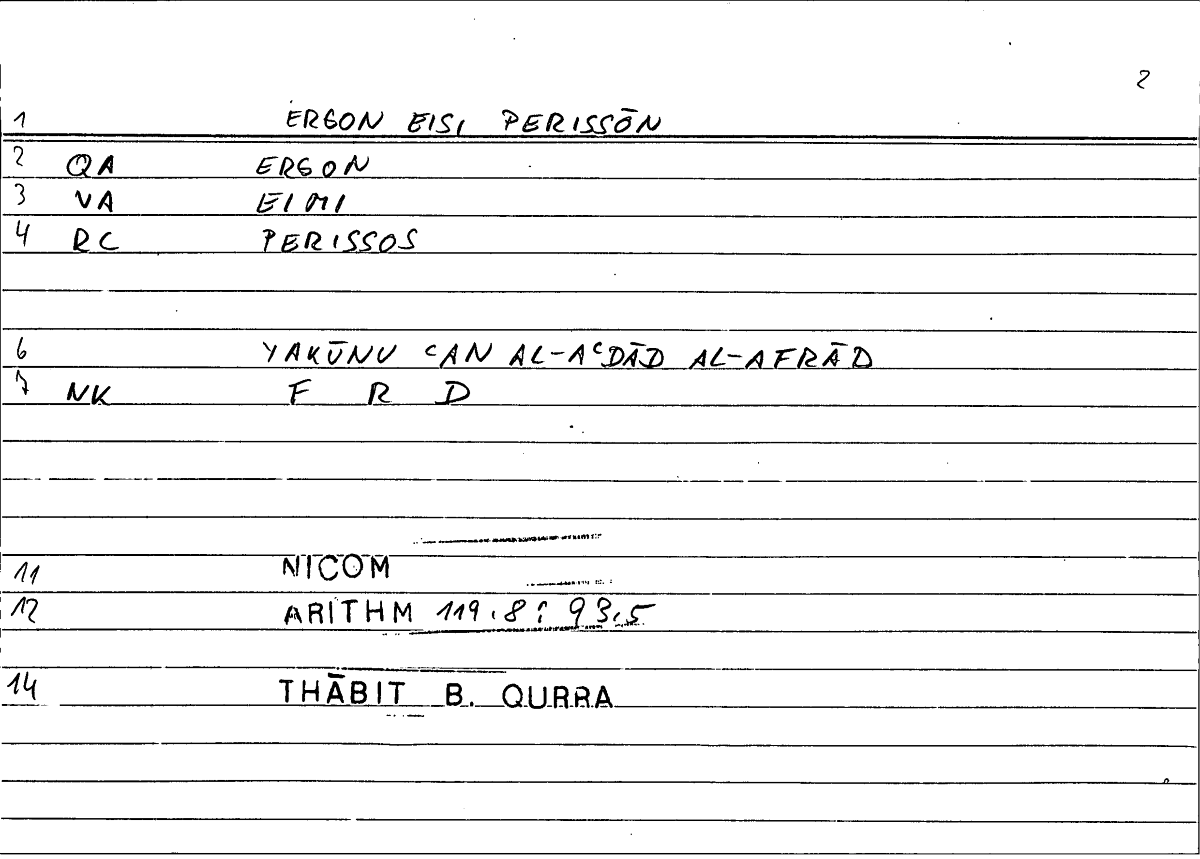 2
1 ERGON EISI PERISSŌN
2 QA ERGON
3 VA EIMI
4 RC PERISSOS
6 YAKŪNU ᶜAN AL-AᶜDĀD AL-AFRĀD
7 NK F R D
11 NICOM
12 ARITHM 119.8; 93.5
14 THĀBIT B. QURRA